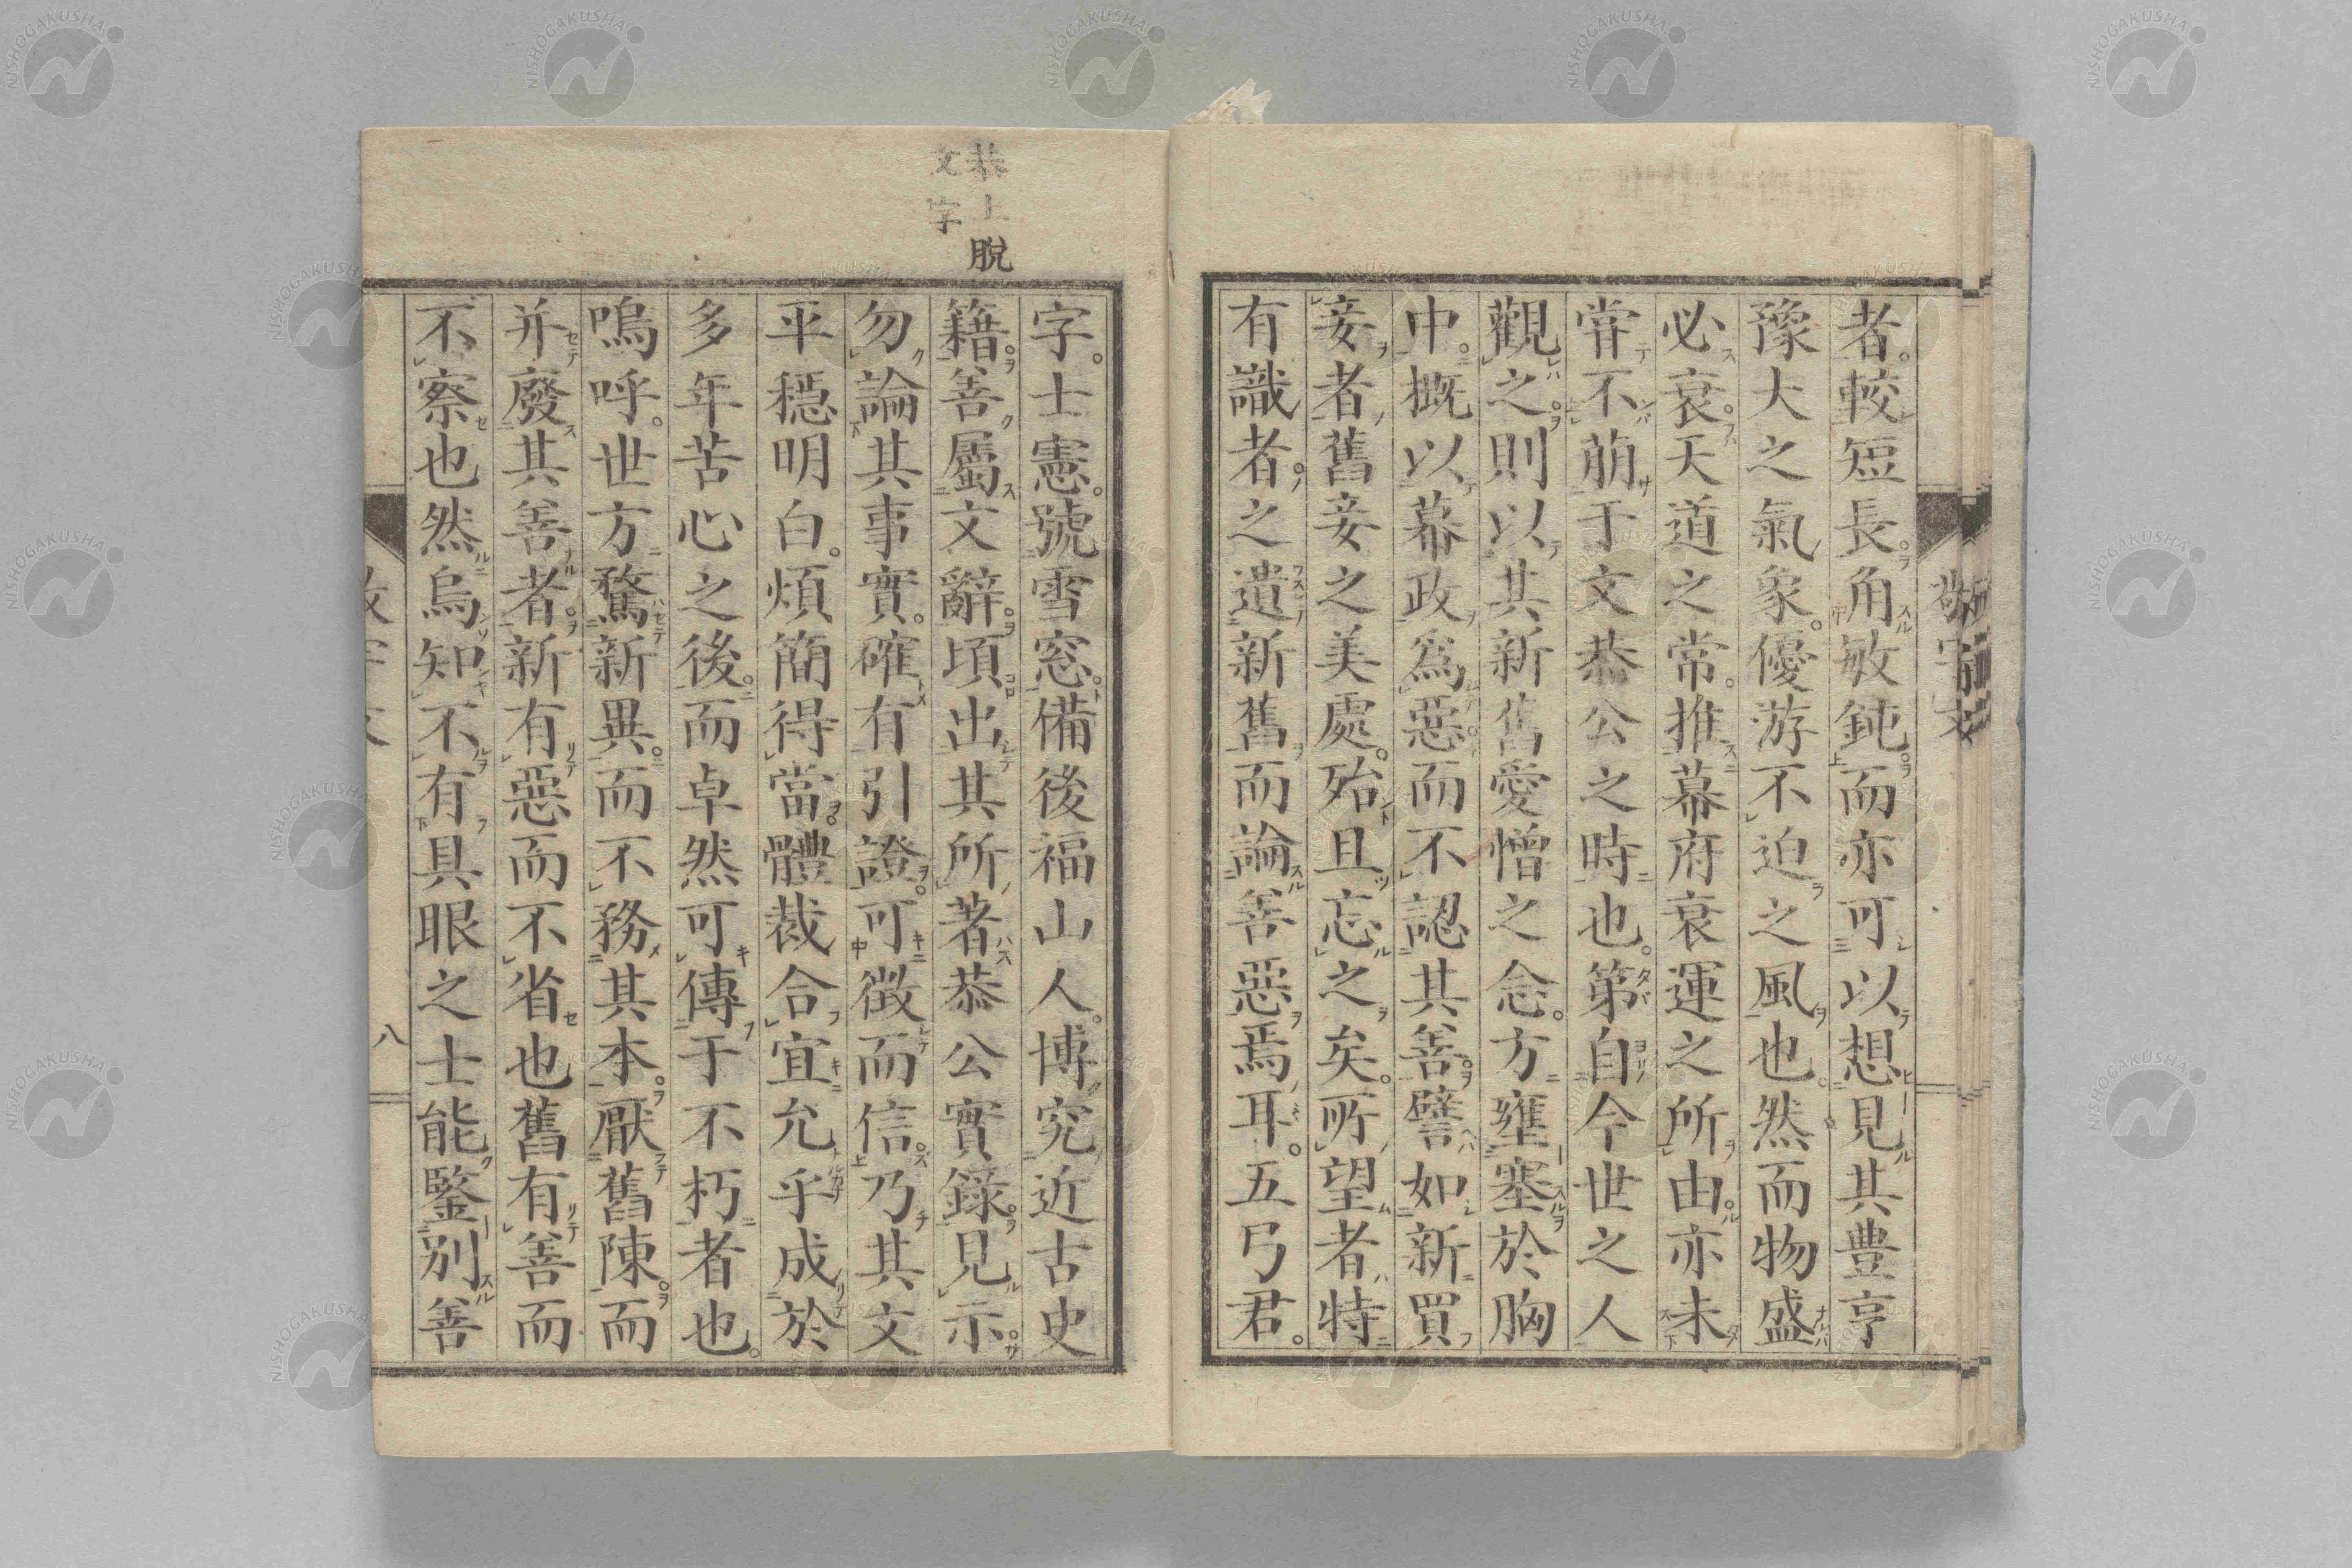 者。較短長。角敏鈍。而亦可以想見其豊亨
豫大之氣象。優游不迫之風也。然而物盛
必衰。天道之常。推幕府衰運之所由。亦未
甞不萠于文恭公之時也。第自今世之人
觀之。則以其新舊愛憎之念。方壅塞於胸
中。概以幕政爲惡。而不認其善。譬如新買
妾者。舊妾之美處。殆且忘之矣。所望者特
有識者。之遺新舊而論善惡焉耳。五弓君。
恭上脫
文字
字士憲。號雪窓。備後福山人。博究近古史
籍。善屬文辭。頃出其所著恭公實錄。見示。
勿論其事實。確有引證。可徴而信。乃其文
平穩明白。煩簡得當。體裁合宜。允乎成於
多年苦心之後。而卓然可傳于不朽者也。
嗚呼。世方騖新異。而不務其本。厭舊陳。而
并廢其善者。新有惡而不省也舊有善而
不察也然烏知不有具眼之士能鑒別善
八
NISHOGAKUSHA